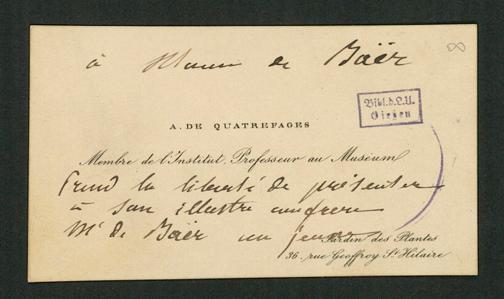 à Monsieur de Baër
Bibl. d. L. U.
Gießen
A. DE QUATREFAGES
Membre de l'Institut, Professeur au Muséum
Prend la liberté de présenter
à son illustre confrère
Mr de Baër un jeune
Jardin des Plantes
36, rue Geoffroy St Hilaire